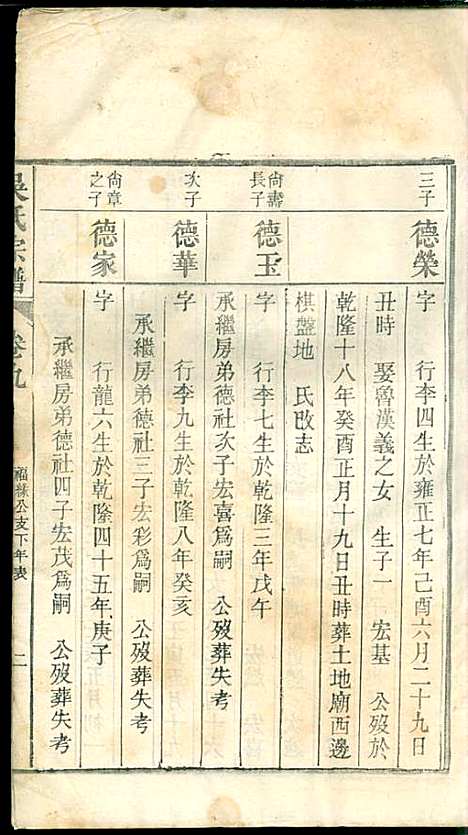 三子
德榮
字　行李四生於雍正七年己酉六月二十九日
丑時　娶魯漢義之女　生子一　宏基　公歿於
乾隆十八年癸酉正月十九日丑時葬土地廟西邊
棋盤地　氏改志
尚壽
長子
德玉
字　行李七生於乾隆三年戊午
承繼房弟德社次子宏喜爲嗣　公歿葬失考
次子
德華
字　行李九生於乾隆八年癸亥
承繼房弟德社三子宏彩爲嗣　公歿葬失考
尚章
之子
德家
字　行龍六生於乾隆四十五年庚子
承繼房弟德社四子宏茂爲嗣　公歿葬失考
吳氏宗譜
卷九
福緣公支下年表